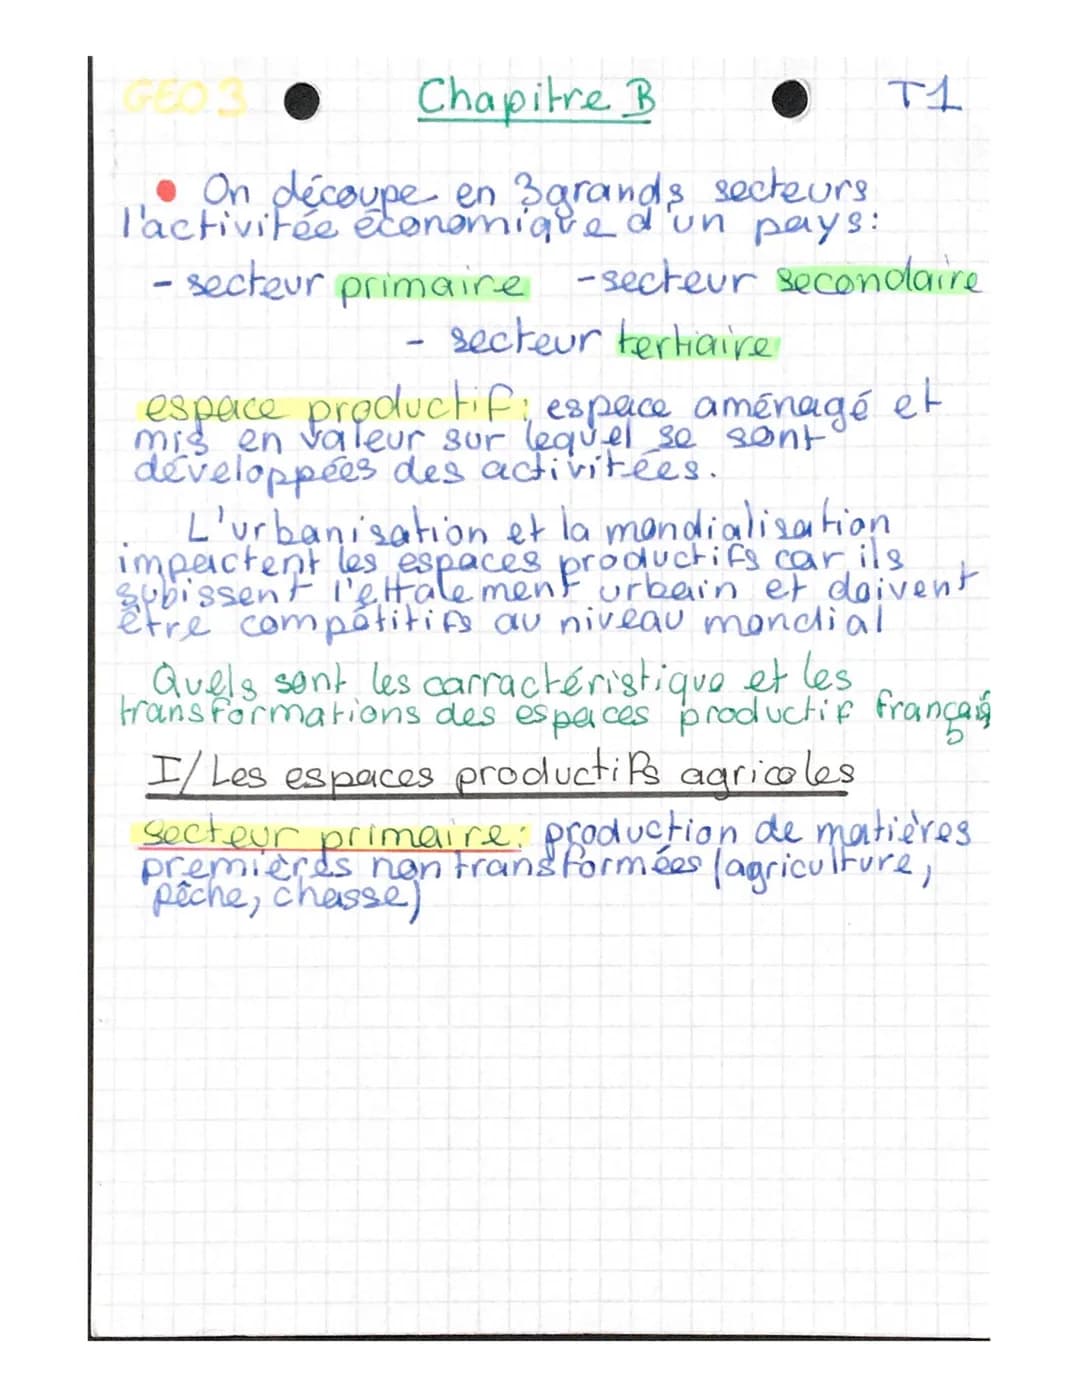 GEO 3 Chapitre B T1
• On découpe en 3 grands secteurs
l'activitée économique d'un pays:
- secteur primaire - secteur secondaire
- secteur tertiaire
espace productif: espace aménagé et
mis en valeur sur lequel se sont
développées des activitées.
L'urbanisation et la mondialisation
impactent les espaces productifs car ils
subissent l'ettalement urbain et doivent
être compétitifs au niveau mondial
Quels sont les carractéristique et les
transformations des espaces productif français
I/ Les espaces productifs agricoles
secteur primaire: production de matières
premières non transformées (agriculture,
pêche, chasse)